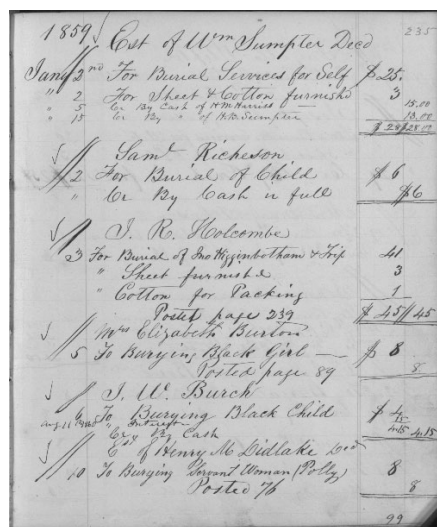 235
1859 Est of Wm Sumpter Decd
Jany 2nd For Burial Services for Self $25.
" 2 For Sheet & Cotton furnishd 3
" 5 Cr By Cash of H M Harris 15.00
" 15 Cr By " of H. B. Sumpter 13.00
$28 $28.00
Saml Richeson
2 For Burial of Child $6
" Cr By Cash in full $6
J. R. Holcombe
3 For Burial of Jno Higginbotham & Trip 41
" Sheet furnishd 3
" Cotton for Packing 1
Posted page 239 $45 $45
Mrs Elizabeth Burton
5 To Burying Black Girl $8
Posted page 89 8
J. W. Burch
6 To Burying Black Child $4
Aug 11 " Interest 15
Cr By Cash 4.15 4.15
Est of Henry M Didlake Decd
10 To Burying Servant Woman (Polly) 8
Posted 76 8
99